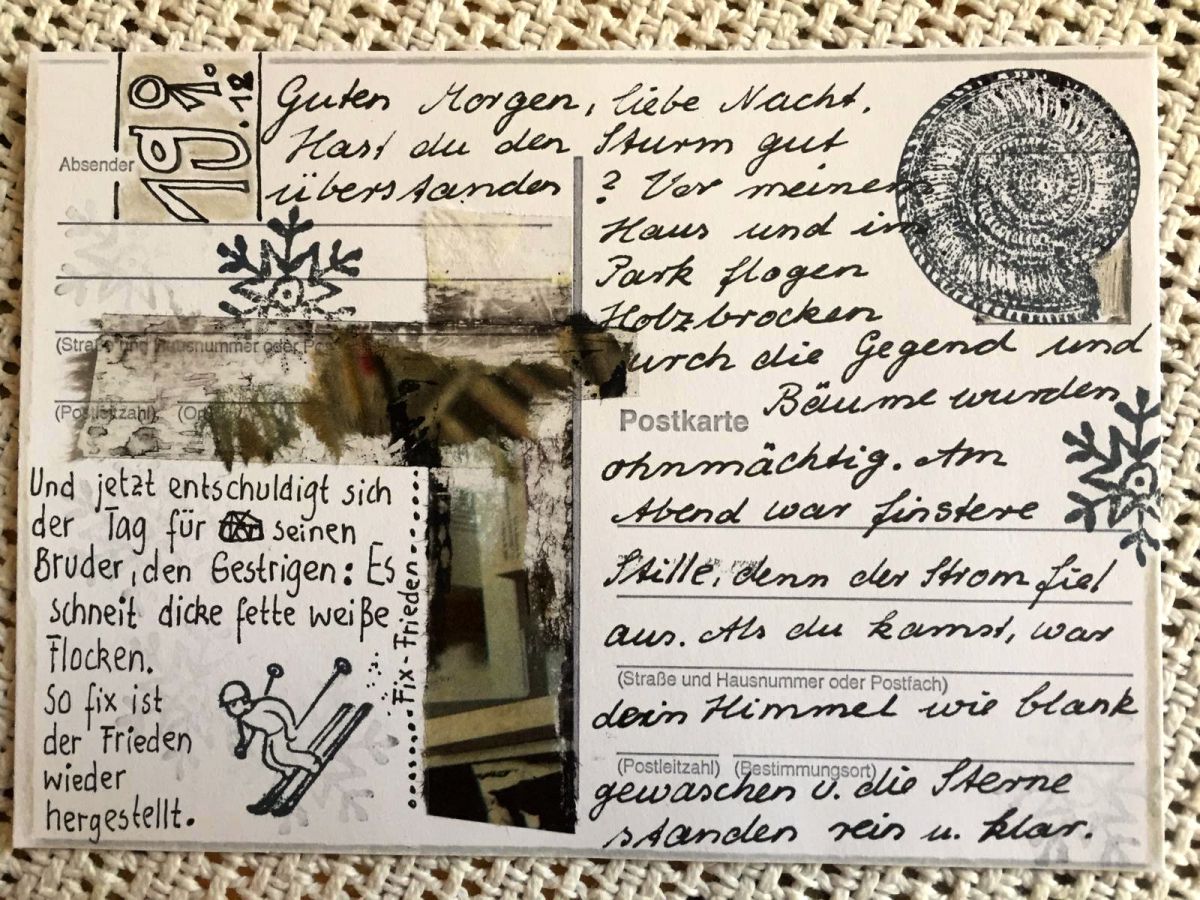 Absender
Guten Morgen, liebe Nacht.
Hast du den Sturm gut
überstanden
? Vor meinem
Haus und im
Park flogen
Holzbrocken
urch die Gegend und
Bäume wurden
Postkarte
ohnmächtig. Am
Abend war finstere
Stille, denn der Strom fiel
aus. Als du kamst, war
(Straße und Hausnummer oder Postfach)
dein Himmel wie blank
(Postleitzahl) (Bestimmungsort)
gewaschen u. die Sterne
standen rein u. klar.
(Straße und Hausnummer oder Pos
(Postleitzahl) (Or
Und jetzt entschuldigt sich
der Tag für seinen
Bruder, den Gestrigen: Es
schneit dicke fette weiße
Flocken.
So fix ist
der Frieden
wieder
hergestellt.
Fix-Frieden